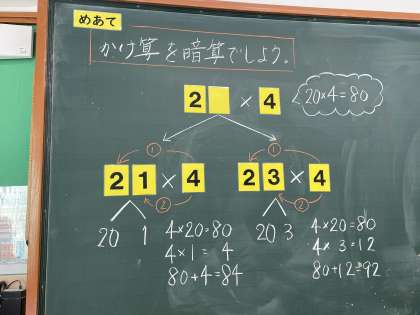 めあて
かけ算を暗算でしよう。
2 × 4
20×4=80
① ①
21×4 23×4
② ②
20 1
4×20=80
4×1=4
80+4=84
20 3
4×20=80
4×3=12
80+12=92